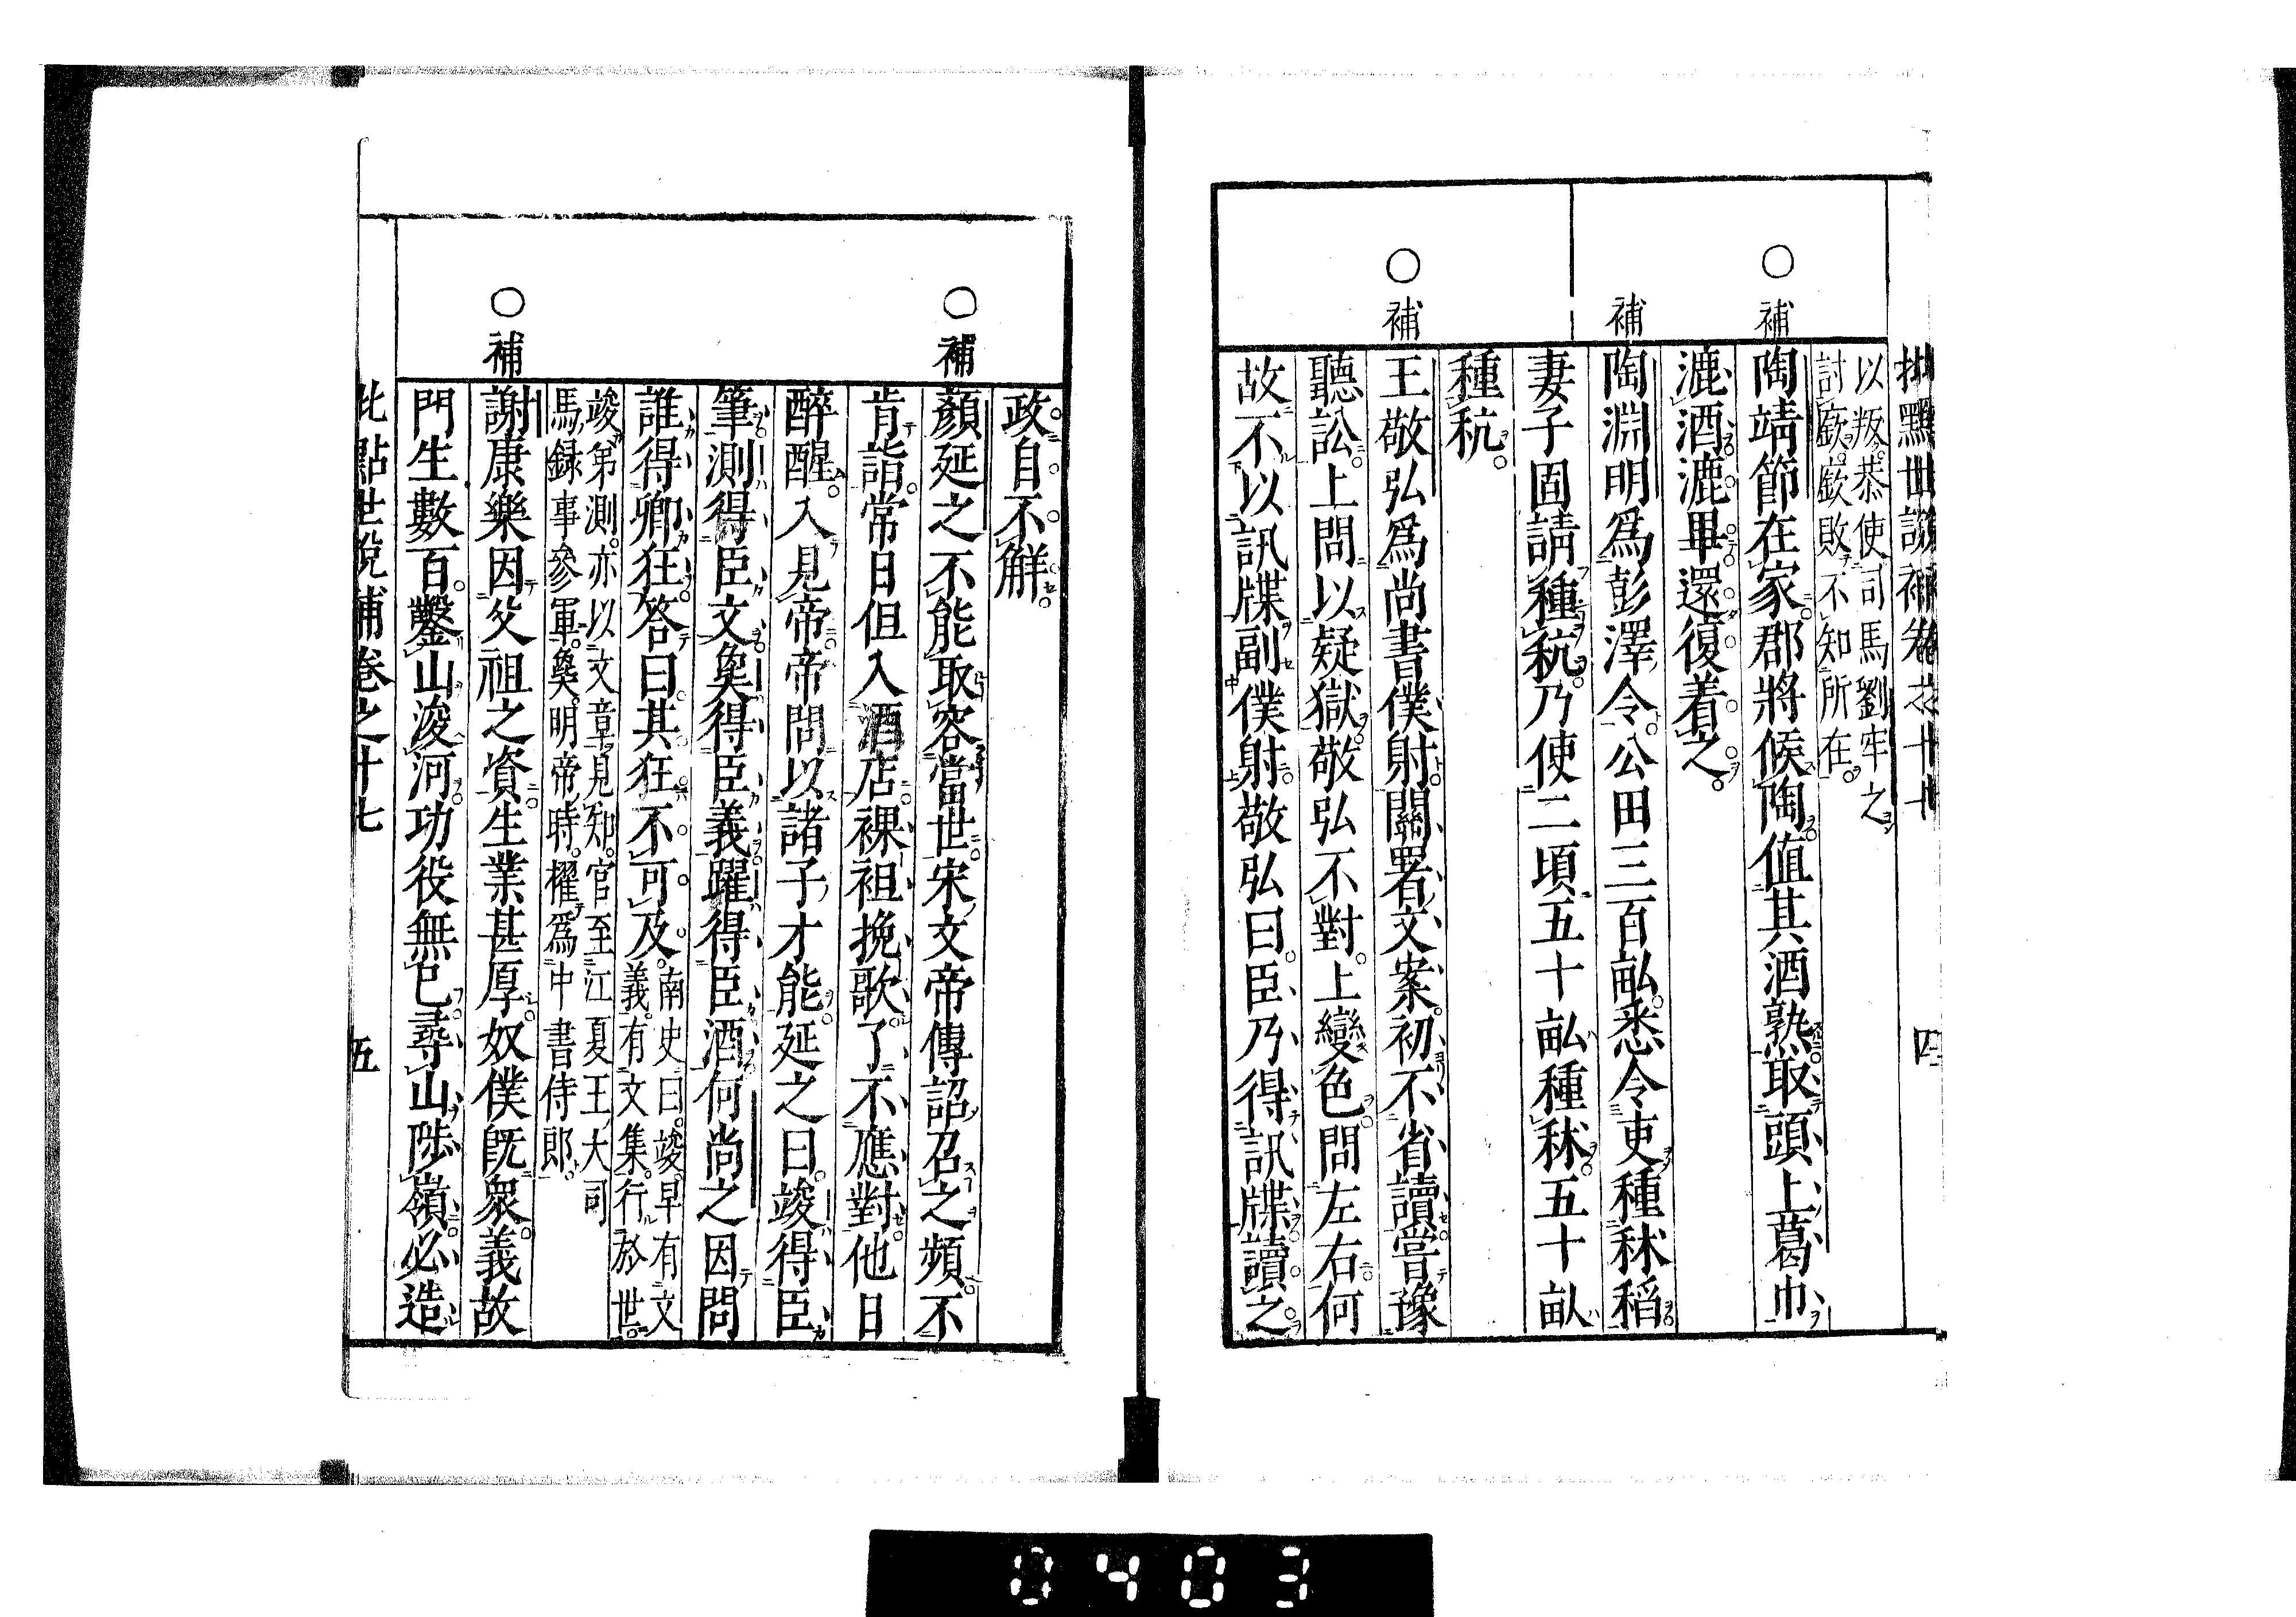 批點世說補卷之十七 四
以叛。恭使司馬劉牢之
討廞。廞敗。不知所在。
○補
陶靖節在家。郡將候陶。値其酒熟。取頭上葛巾
漉酒。漉畢。還復着之。
補
陶淵明爲彭澤令。公田三百畝。悉令吏種秫稻。
妻子固請種秔。乃使二頃五十畝種秫。五十畝
種秔。
○補
王敬弘爲尚書僕射。關署文案。初不省讀。嘗豫
聽訟。上問以疑獄。敬弘不對。上變色。問左右。何
故不以訊牒副僕射。敬弘曰。臣乃得訊牒讀之。
政自不解。
○補
顏延之不能取容當世。宋文帝傳詔召之。頻不
肯詣。常日但入酒店。裸袒挽歌。了不應對。他日
醉醒。入見帝。帝問以諸子才能。延之曰。竣得臣
筆。測得臣文。㚟得臣義。躍得臣酒。何尚之因問
誰得卿狂。答曰。其狂不可及。
南史曰。竣。早有文
義。有文集。行於世。
竣弟測。亦以文章見知。官至江夏王大司
馬錄事參軍。㚟。明帝時。擢爲中書侍郎。
○補
謝康樂因父祖之資。生業甚厚。奴僕旣衆。義故
門生數百。鑿山浚河。功役無已。尋山陟嶺。必造
批點世說補卷之十七 五
0403